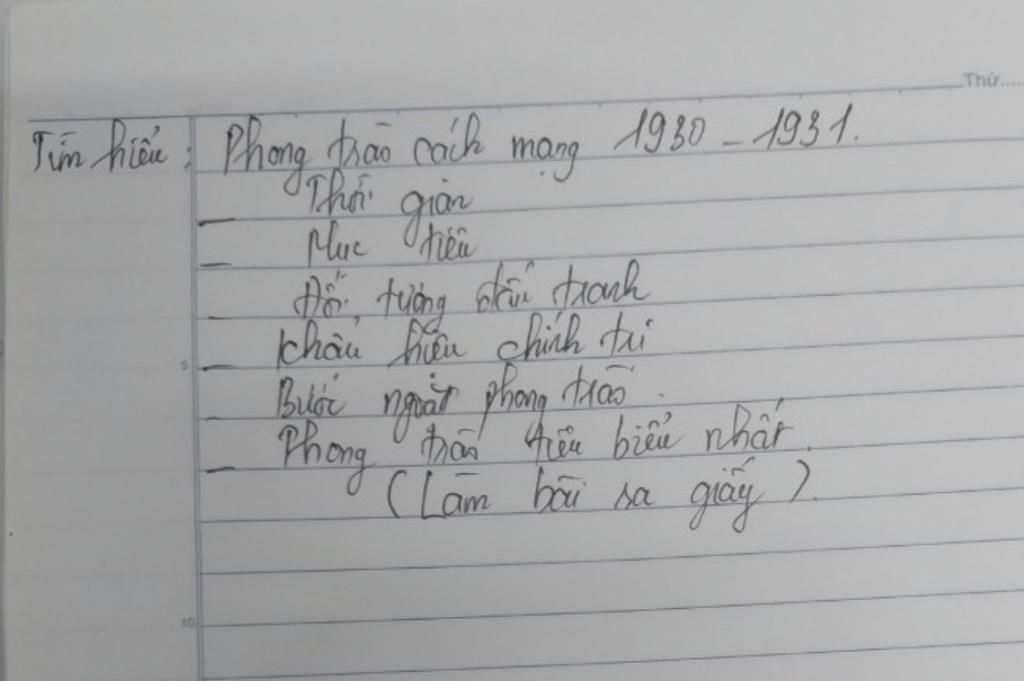 Thứ.....
Tìm hiểu : Phong trào cách mạng 1930 - 1931.
_ Thời gian
_ Mục tiêu
_ Đối tượng đấu tranh
5 _ Khẩu hiệu chính trị
_ Bước ngoặt phong trào.
_ Phong trào tiêu biểu nhất.
(Làm bài ra giấy).
10